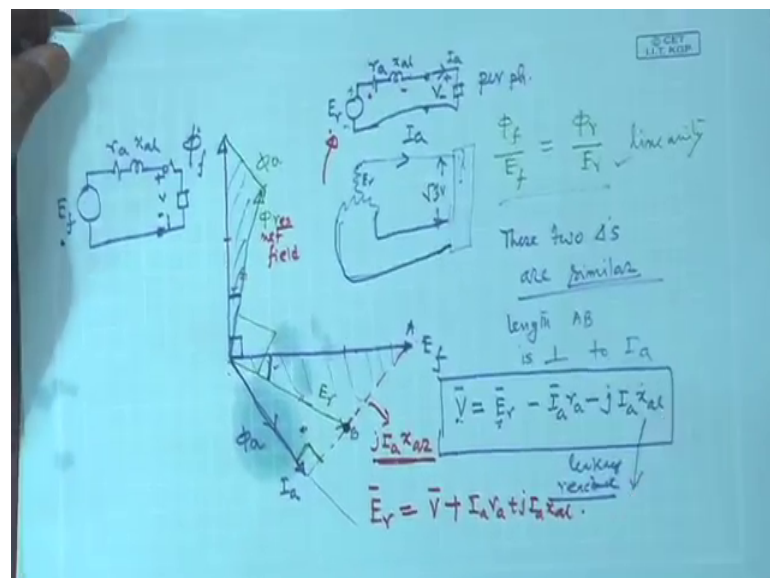 © CET
I.I.T. KGP
ra xal Ia
Er V per ph.
ra xal
Ef V
Φf
Φa
Φres
net
field
Φ
Ia
Er √3V ?
Φf/Ef = Φr/Er linearity
These two Δ's
are similar
length AB
is ⊥ to Ia
A Ef
Er
B
Φa
Ia
jIaxa2
V̄ = Ēr - Īara - jIaxal
leakage
reactance
Ēr = V̄ + Iara + jIaxal.